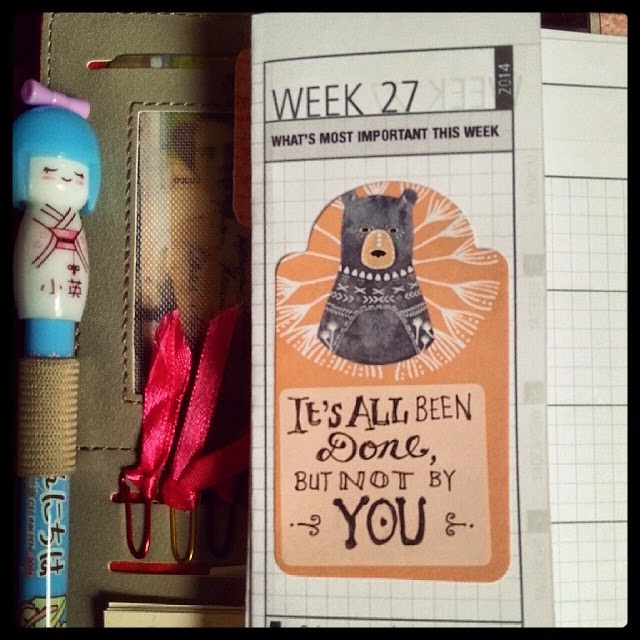 WEEK 27
2014
WHAT'S MOST IMPORTANT THIS WEEK
IT'S ALL BEEN
Done,
BUT NOT BY
YOU
小英
んにちは